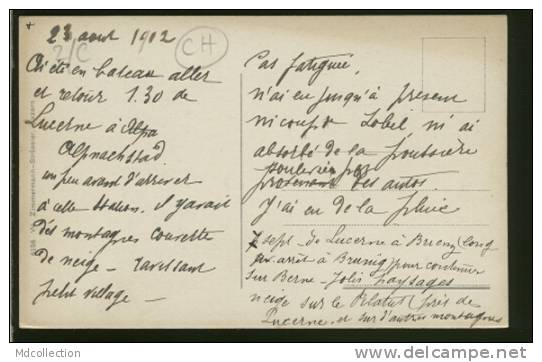 23 aout 1912
CH
Ai été en bateau aller
et retour 1.30 de
Lucerne à Alpa
Alpnachstad
un peu avant d'arriver
à cette station. Il y avait
des montagnes couverte
de neige - ravissant
petit village -
Pas fatiguée,
n'ai eu jusqu'à présent
ni coup de soleil ni ai
absorbé de la poussière
provenant des autos.
J'ai eu de la pluie
7 sept. de Lucerne à Brienz
arrêt à Brunig pour continuer
sur Berne - Jolis paysages
neige sur le Pilatus près de
Lucerne et sur d'autres montagnes
Mdcollection
www.delcampe.net